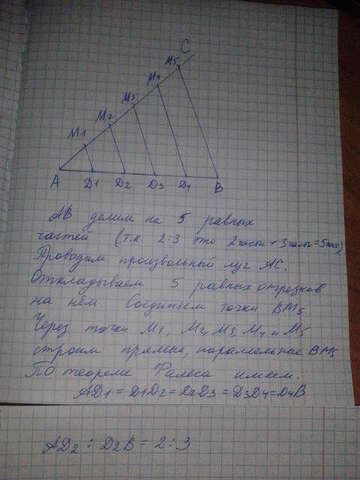 C
M5
M4
M3
M2
M1
A D1 D2 D3 D4 B
AB делим на 5 равных
частей (т.к 2:3 то 2части+3части=5час)
Проводим произвольный луч AC.
Откладываем 5 равных отрезков
на нём. Соединяем точки BM5
Через точки M1, M2 M3 M4 и M5
строим прямые, параллельные BM5
По теореме Фалеса имеем.
AD1=D1D2=D2D3=D3D4=D4B
AD2:D2B=2:3